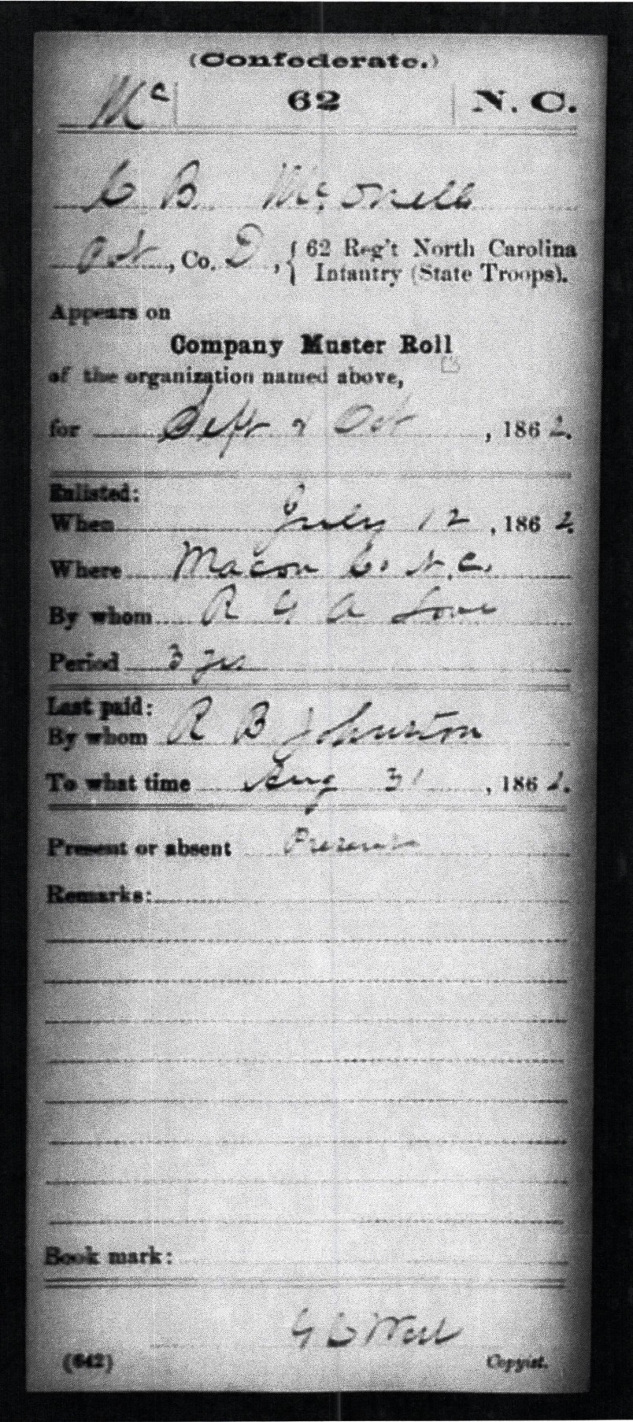 (Confederate.)
Mc 62 N. C.
C B McOnell
Pvt, Co. D, { 62 Reg't North Carolina
Infantry (State Troops).
Appears on
Company Muster Roll
of the organization named above,
for Sept & Oct, 1862.
Enlisted:
When July 12, 1862
Where Macon C. N.C.
By whom R G A Love
Period 3 yrs
Last paid:
By whom R B Johnston
To what time Aug 31, 1862.
Present or absent Present
Remarks:
Book mark:
G C West
(642) Copyist.